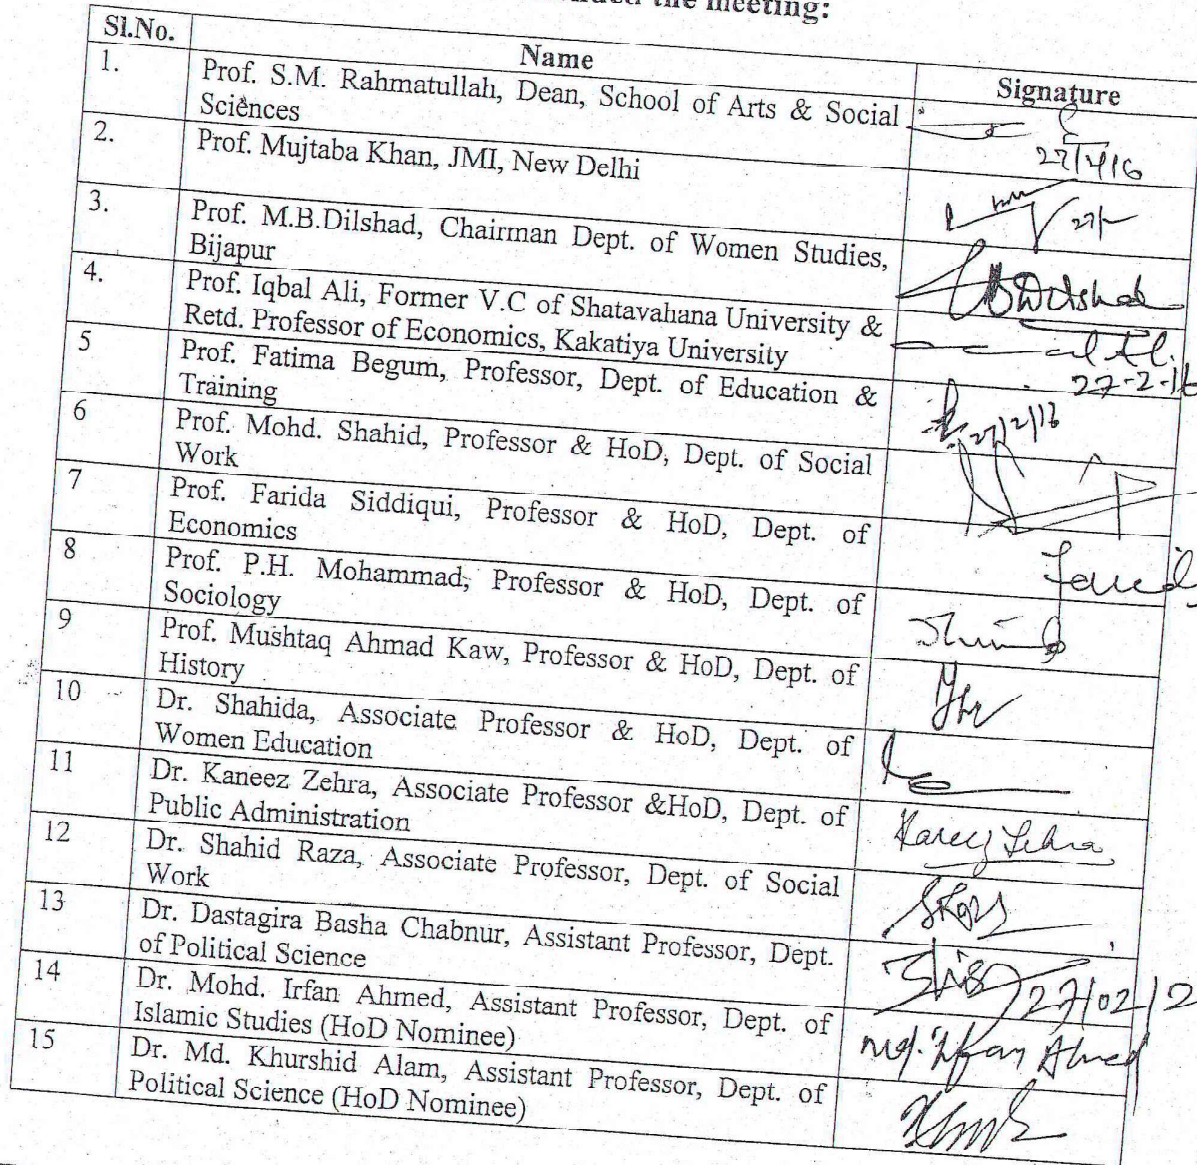 the meeting:
Sl.No. Name Signature
1. Prof. S.M. Rahmatullah, Dean, School of Arts & Social
Sciences
27/2/16
2. Prof. Mujtaba Khan, JMI, New Delhi
27/-
3. Prof. M.B.Dilshad, Chairman Dept. of Women Studies,
Bijapur
Dilshad
4. Prof. Iqbal Ali, Former V.C of Shatavahana University &
Retd. Professor of Economics, Kakatiya University
27-2-16
5 Prof. Fatima Begum, Professor, Dept. of Education &
Training
27/2/16
6 Prof. Mohd. Shahid, Professor & HoD, Dept. of Social
Work
7 Prof. Farida Siddiqui, Professor & HoD, Dept. of
Economics
8 Prof. P.H. Mohammad, Professor & HoD, Dept. of
Sociology
9 Prof. Mushtaq Ahmad Kaw, Professor & HoD, Dept. of
History
10 Dr. Shahida, Associate Professor & HoD, Dept. of
Women Education
11 Dr. Kaneez Zehra, Associate Professor &HoD, Dept. of
Public Administration
Kaneez Zehra
12 Dr. Shahid Raza, Associate Professor, Dept. of Social
Work
13 Dr. Dastagira Basha Chabnur, Assistant Professor, Dept.
of Political Science
27/02/2
14 Dr. Mohd. Irfan Ahmed, Assistant Professor, Dept. of
Islamic Studies (HoD Nominee)
Md. Irfan Ahmed
15 Dr. Md. Khurshid Alam, Assistant Professor, Dept. of
Political Science (HoD Nominee)